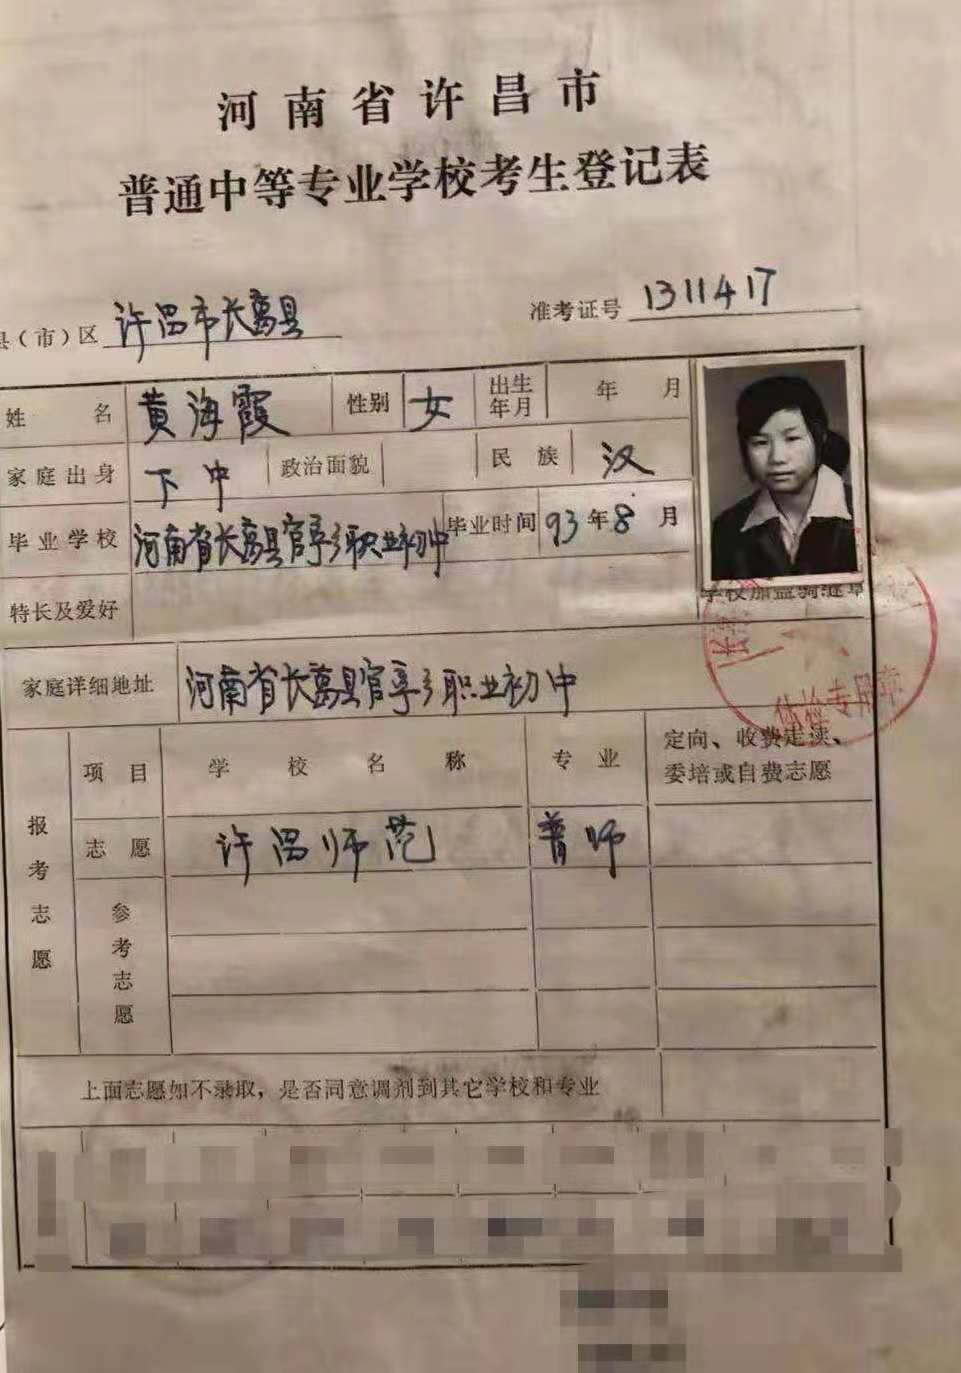 河南省许昌市
普通中等专业学校考生登记表
县（市）区 许昌市长葛县 准考证号 1311417
姓名 黄海霞 性别 女 出生年月 年 月
家庭出身 下中 政治面貌 民族 汉
毕业学校 河南省长葛县官亭乡职业初中 毕业时间 93年8月
学校加盖骑缝章
特长及爱好
家庭详细地址 河南省长葛县官亭乡职业初中
体检专用章
报考志愿 项目 学校名称 专业 定向、收费走读、
委培或自费志愿
志愿 许昌师范 普师
参考志愿
上面志愿如不录取，是否同意调剂到其它学校和专业